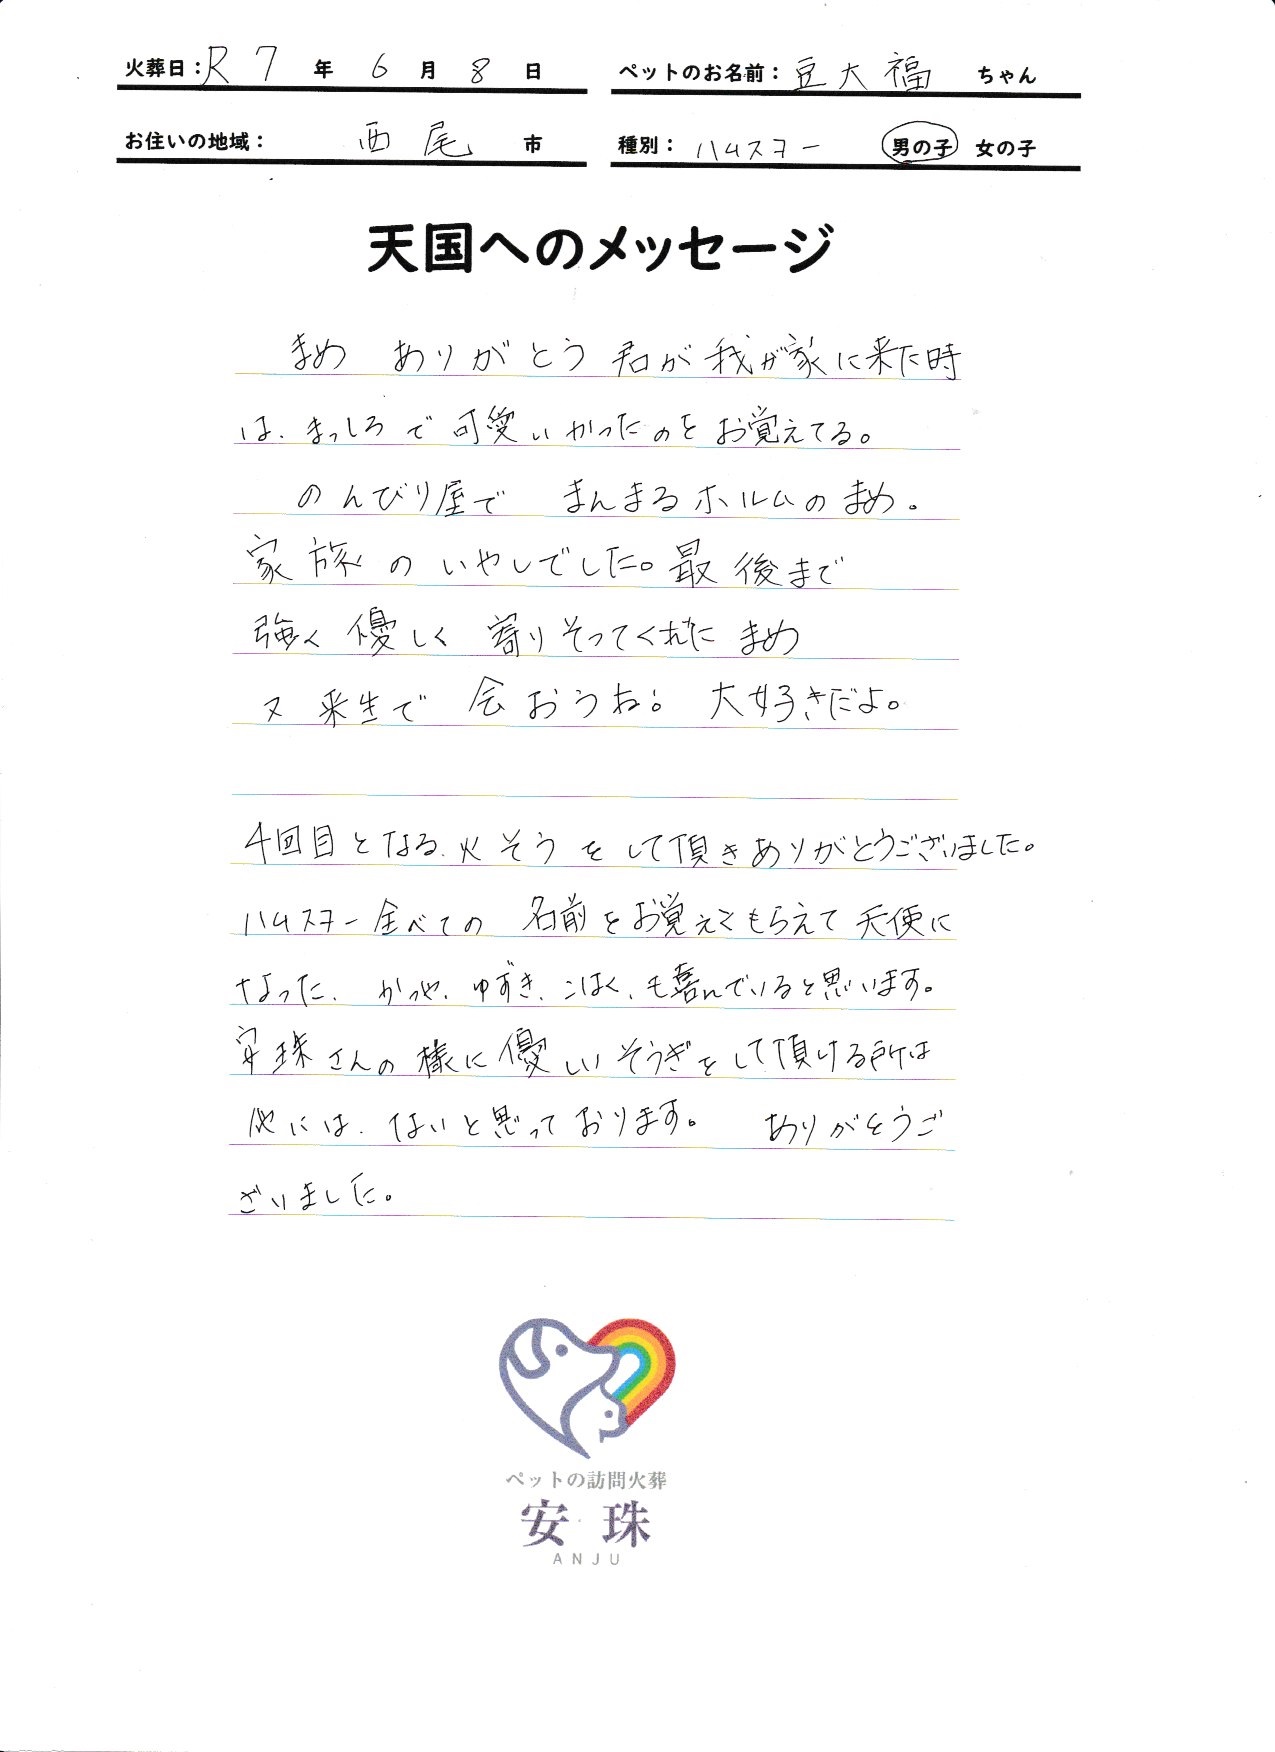 火葬日：R7年6月8日
ペットのお名前：豆大福ちゃん
お住いの地域：西尾市
種別：ハムスター 男の子 女の子
天国へのメッセージ
まめ ありがとう 君が我が家に来た時
は、まっしろで可愛いかったのをお覚えてる。
のんびり屋で まんまるホルムのまめ。
家族のいやしでした。最後まで
強く優しく 寄りそってくれた まめ
又来生で会おうね! 大好きだよ。
4回目となる、火そうをして頂きありがとうございました。
ハムスター全べての名前をお覚えてもらえて天使に
なった、かつや、ゆずき、こはく、も喜んでいると思います。
安珠さんの様に優しいそうぎをして頂ける所は
他には、ないと思っております。 ありがとうご
ざいました。
ペットの訪問火葬
安珠
ANJU